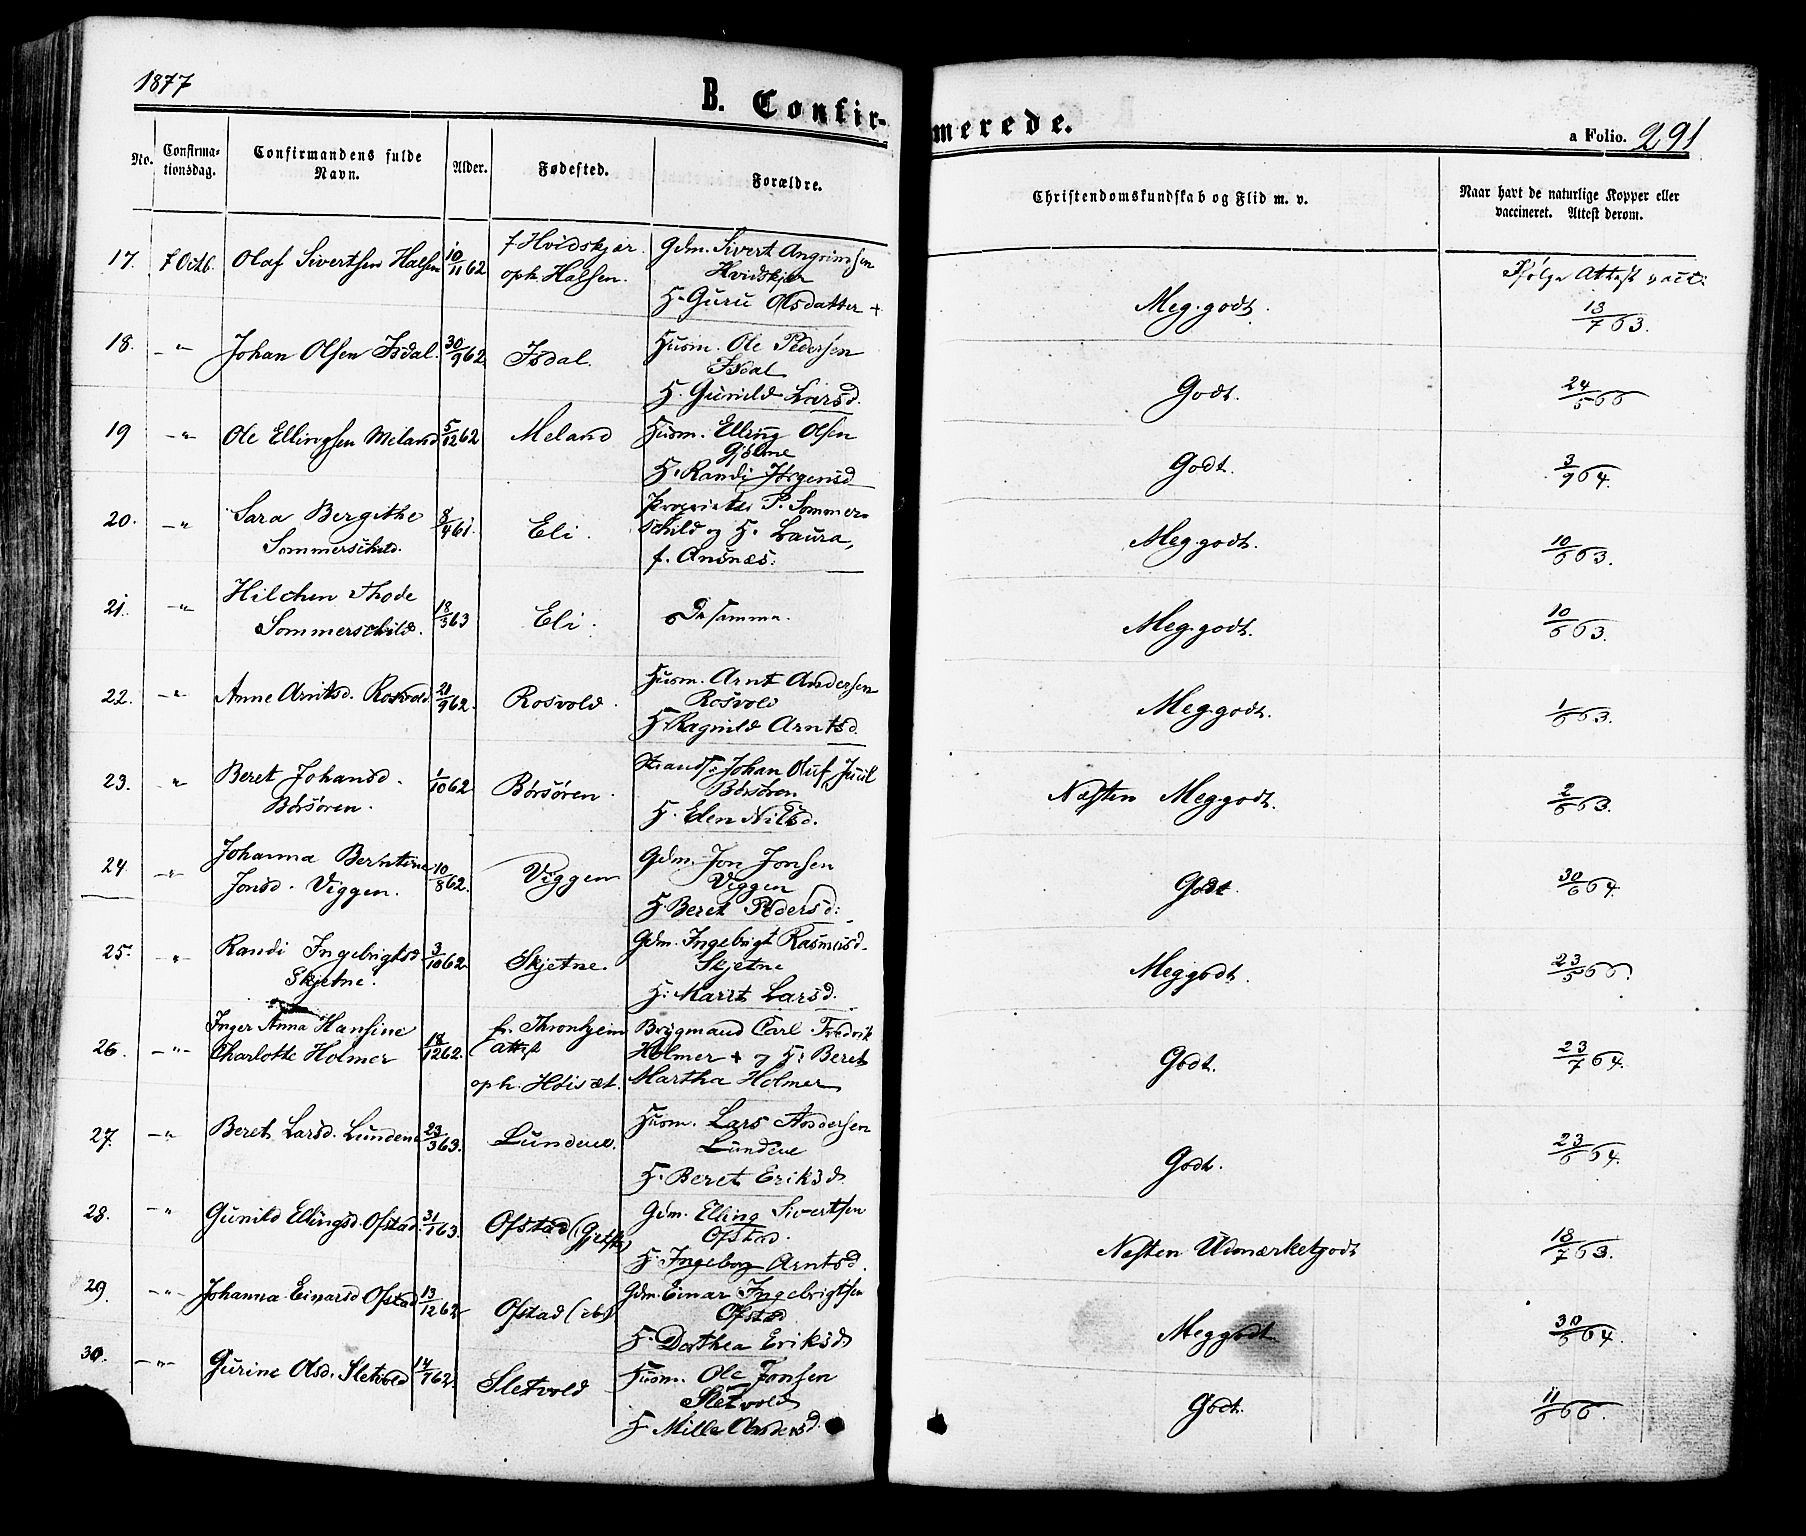 1877
B. Confir-
merede.
a Folio. 291
No.
Confirma-
tionsdag.
Confirmandens fulde
Navn.
Alder.
Fødested.
Forældre.
Christendomskundskab og Flid m. v.
Naar havt de naturlige Kopper eller
vaccineret. Attest derom.
17. 7 Octb. Olaf Sivertsen Halsen 10/11 62 f Hvidskjær Gdm. Sivert Angrimsen
oph. Halsen. Hvidskjær
H. Guru Olsdatter +
Meg. godt. Ifølge Attest vacc.
13/7 63.
18. -"- Johan Olsen Isdal. 30/9 62 Isdal. Husm. Ole Pedersen
Isdal
H. Gunild Larsd.
Godt. 24/5 66
19 -"- Ole Ellingsen Meland 5/12 62 Meland Husm. Elling Olsen
Gjølme
H. Randi Jørgensd
Godt. 3/9 64.
20. -"- Sara Bergithe 8/4 61. Eli. P. Sommer-
Sommerschild. schild og H. Laura,
f. Ansnæs.
Meg. godt. 10/6 63.
21. -"- Hilchen Thode 18/5 63 Eli. De samme.
Sommerschild.
Meg. godt. 10/6 63.
22. -"- Anne Arntsd. Rosvold 21/9 62. Rosvold. Husm. Arnt Andersen
Rosvold
H. Ragnild Arntsd.
Meg. godt. 1/6 63.
23. " Beret Johansd. 1/10 62 Børsøren. Strands. Johan Oluf Juul
Børsøren. Børsøren
H. Elen Nilsd.
Næsten Meg. godt. 2/6 63.
24. -"- Johanna Berntine 10/8 62. Viggen Gdm. Jon Jonsen
Jonsd. Viggen. Viggen
H Beret Pedersd.
Godt. 30/6 64.
25. -"- Randi Ingebrigtsd 3/10 62. Skjetne. Gdm. Ingebrigt Rasmusd.
Skjetne. Skjetne
H. Marit Larsd.
Meg godt. 23/5 66.
26. -"- Inger Anna Hansine 18/12 62. fr. Throntjem Brygmand Carl Fredrik
Charlotte Holmer Attest Holmer + og H. Beret
oph. Høisæt. Martha Holmer
Godt. 23/7 64.
27. -"- Beret Larsd. Lundene 23/3 63. Lundene. Husm. Lars Andersen
Lundene
H. Beret Eriksd.
Godt. 23/6 64.
28. -"- Gunild Ellingsd. Ofstad. 31/1 63. Ofstad Gdm. Elling Sivertsen
Ofstad.
H. Ingeborg Arntsd.
Næsten Udmærketgodt 18/7 63.
29. -"- Johanna Einarsd Ofstad 13/12 62 Ofstad (ibd) Gdm. Einar Ingebrigtsen
Ofstad
H. Dorthea Eriksd.
Meg godt. 30/6 64.
30. -"- Gurine Olsd. Sletvold 14/7 62. Sletvold Husm. Ole Jonsen
Sletvold
H Mille Andersd.
Godt. 11/6 66.